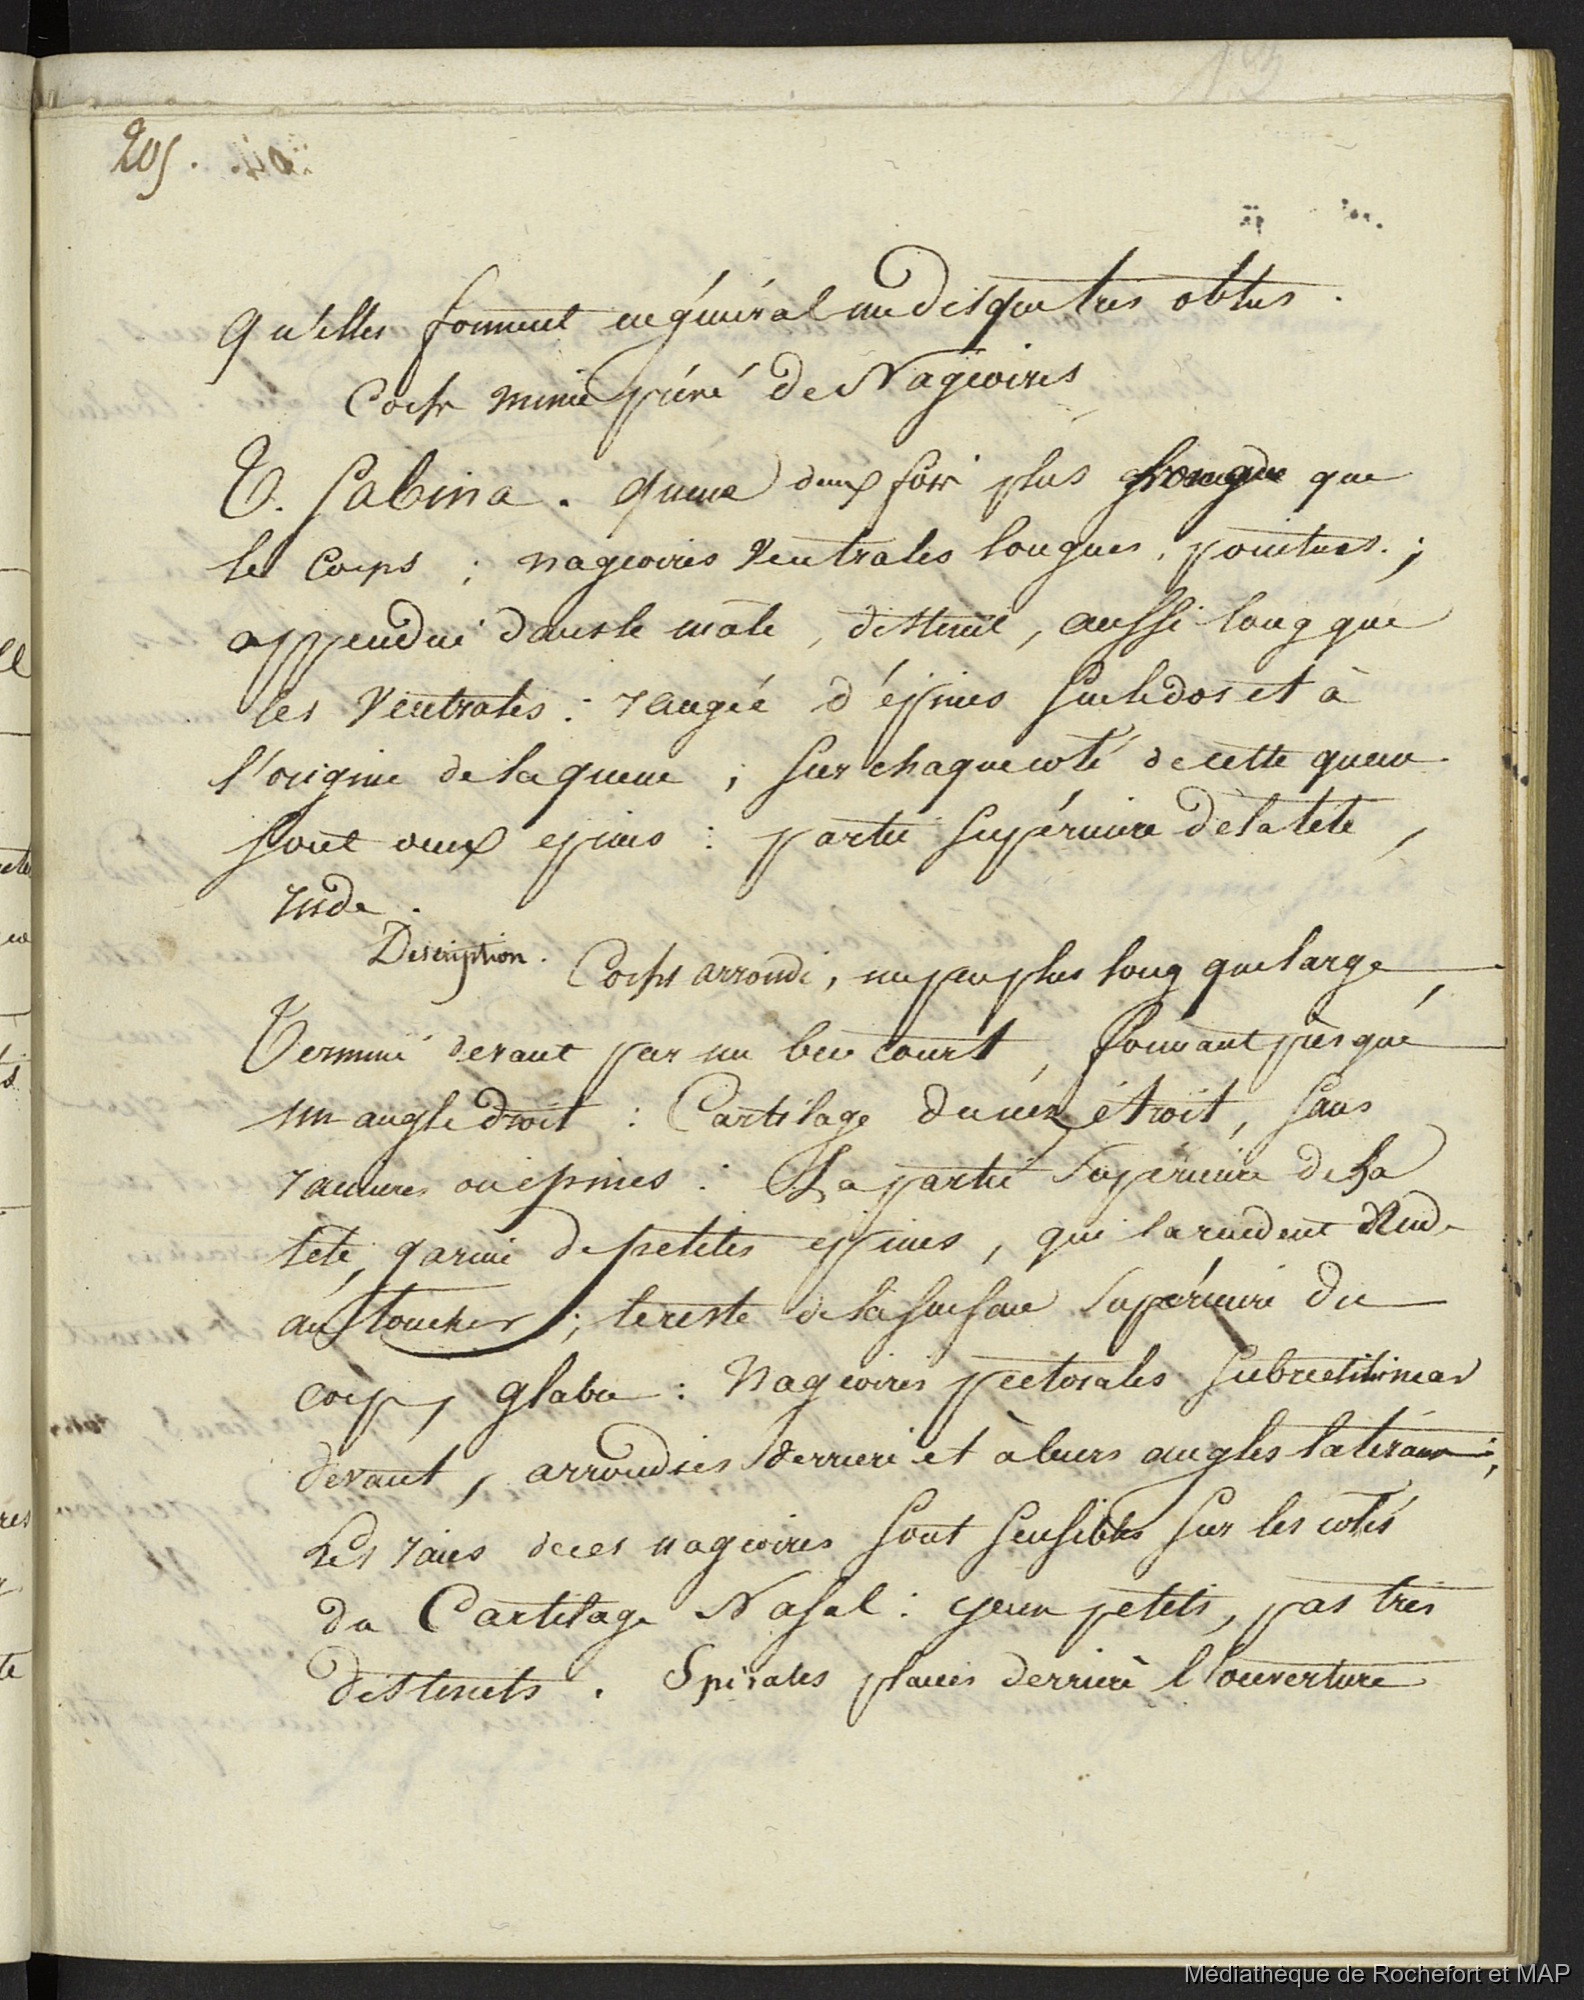 205.
qu'elles forment en général un disque très obtus.
Corps minie piéré de Nageoires
T. Sabina. queue deux fois plus longue que
le corps ; nageoires Ventrales longues, pointues. ;
appendice dans le male, distinct, aussi long que
les Ventrales : rangée d'épines sur le dos et à
l'origine de la queue ; sur chaque coté de cette queue
sont deux epines : partie supérieure de la tête,
rude.
Description. Corps arrondi, un peu plus long que large,
Terminé devant par un bec court, formant presque
un angle droit : Cartilage du nez étroit, sans
rainures ou épines : La partie Superieure de la
tete, garnie de petites epines, qui la rendent Rude
au toucher ; le reste de la surface Supérieure du
corps, glabre : Nageoires pectorales subrectilinear
devant, arrondies derriere et à leurs angles lateraux ;
Les raies de ces nageoires sont sensibles sur les cotés
du Cartilage Nasal : yeux petits, pas très
distincts. Spirales placés derriere l'ouverture
Médiathèque de Rochefort et MAP